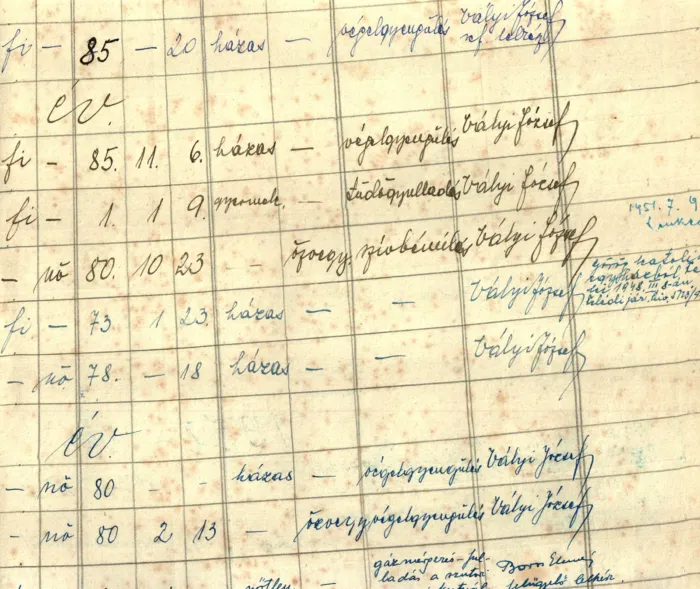 fi - 85 - 20 házas - végelgyengülés Vályi József
ref. lelkész
év.
fi - 85. 11. 6. házas - végelgyengülés Vályi József
fi - 1 1 9. gyermek. - tüdőgyulladás Vályi József
1951. 7. 9
- nő 80. 10 23 - özvegy szívbénulás Vályi József
fi - 73 1 23. házas - - Vályi József
görög katoli
egyházból té
1948. III. 8-án.
- nő 78. - 18 házas - - Vályi József
év.
- nő 80 - - házas - végelgyengülés Vályi József
- nő 80 2 13 - özvegy végelgyengülés Vályi József
gázmérgezés
a Boros Elemér
nőtlen lelkész.